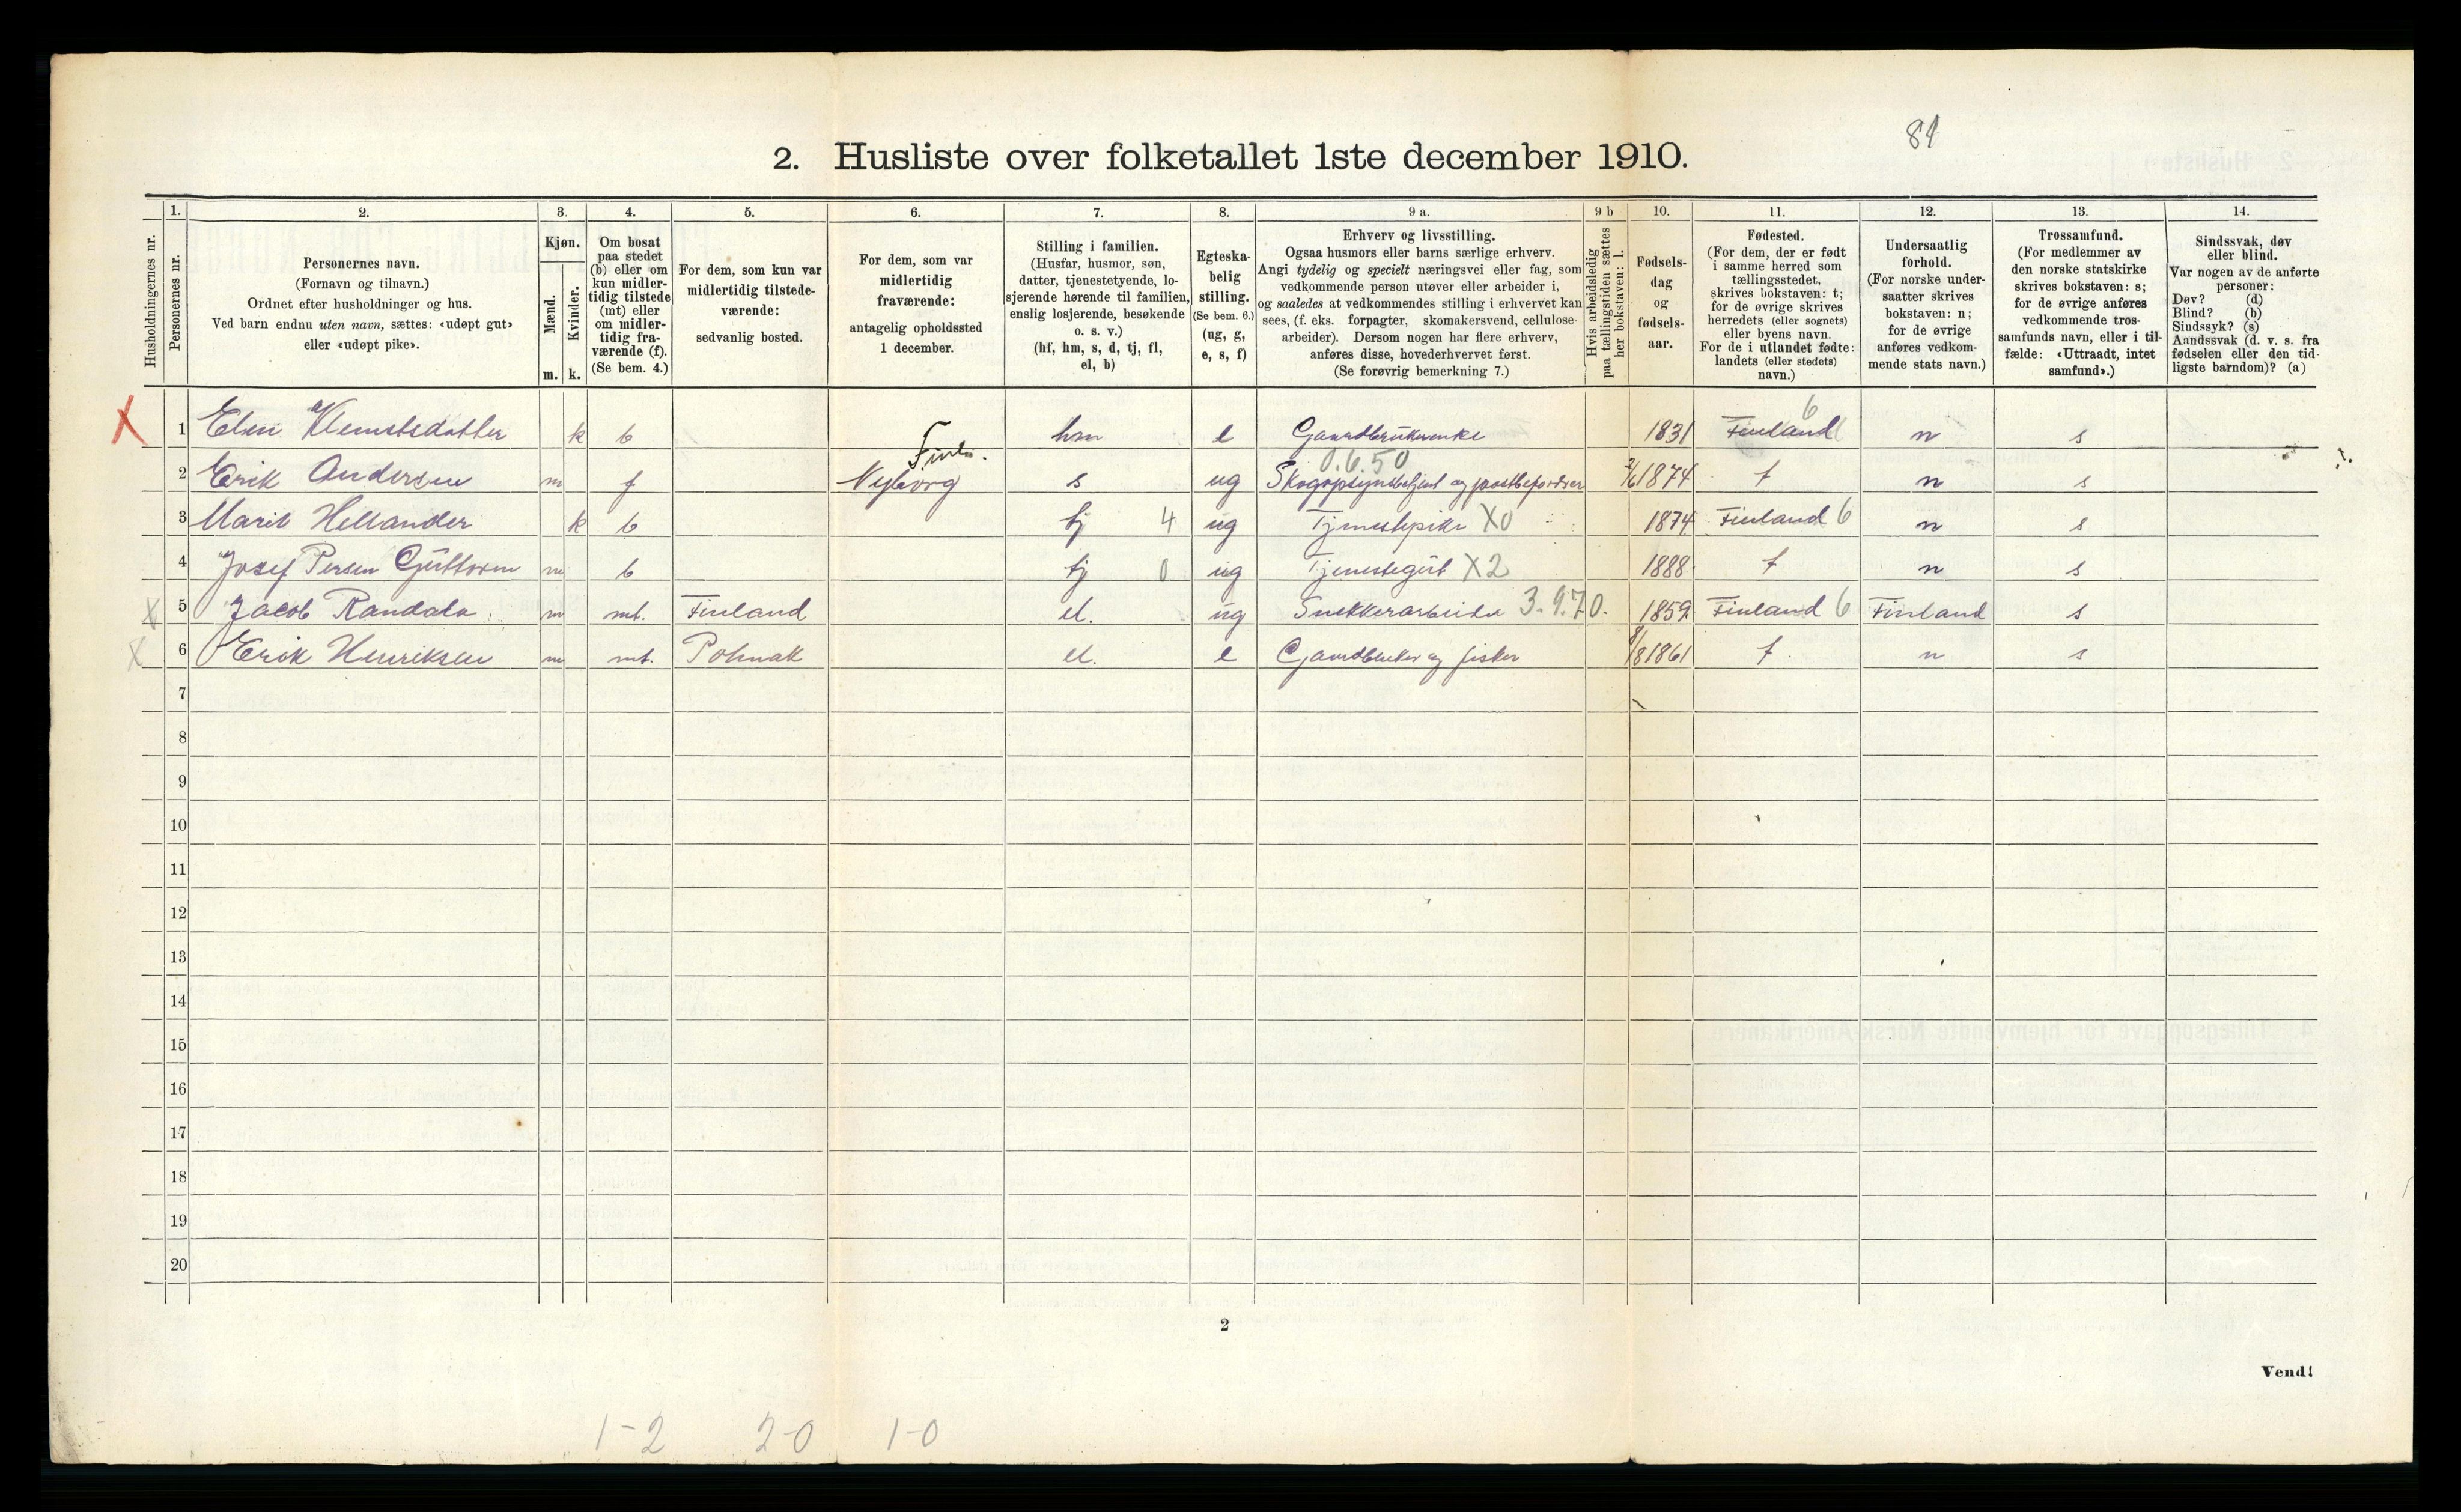 84
2. Husliste over folketallet 1ste december 1910.
Husholdningernes nr.
1.
Personernes nr.
2.
Personernes navn.
(Fornavn og tilnavn.)
Ordnet efter husholdninger og hus.
Ved barn endnu uten navn, sættes: «udøpt gut»
eller «udøpt pike».
3.
Kjøn.
Mænd.
Kvinder.
m. k.
4.
Om bosat
paa stedet
(b) eller om
kun midler-
tidig tilstede
(mt) eller
om midler-
tidig fra-
værende (f).
(Se bem. 4.)
5.
For dem, som kun var
midlertidig tilstede-
værende:
sedvanlig bosted.
6.
For dem, som var
midlertidig
fraværende:
antagelig opholdssted
1 december.
7.
Stilling i familien.
(Husfar, husmor, søn,
datter, tjenestetyende, lo-
sjerende hørende til familien,
enslig losjerende, besøkende
o. s. v.)
(hf, hm, s, d, tj, fl,
el, b)
8.
Egteska-
belig
stilling.
(Se bem. 6.)
(ug, g,
e, s, f)
9 a.
Erhverv og livsstilling.
Ogsaa husmors eller barns særlige erhverv.
Angi tydelig og specielt næringsvei eller fag, som
vedkommende person utøver eller arbeider i,
og saaledes at vedkommendes stilling i erhvervet kan
sees, (f. eks. forpagter, skomakersvend, cellulose-
arbeider). Dersom nogen har flere erhverv,
anføres disse, hovederhvervet først.
(Se forøvrig bemerkning 7.)
9 b
Hvis arbeidsledig
paa tællingstiden sættes
her bokstaven: l.
10.
Fødsels-
dag
og
fødsels-
aar.
11.
Fødested.
(For dem, der er født
i samme herred som
tællingsstedet,
skrives bokstaven: t;
for de øvrige skrives
herredets (eller sognets)
eller byens navn.
For de i utlandet fødte:
landets (eller stedets)
navn.)
12.
Undersaatlig
forhold.
(For norske under-
saatter skrives
bokstaven: n;
for de øvrige
anføres vedkom-
mende stats navn.)
13.
Trossamfund.
(For medlemmer av
den norske statskirke
skrives bokstaven: s;
for de øvrige anføres
vedkommende tros-
samfunds navn, eller i til-
fælde: «Uttraadt, intet
samfund».)
14.
Sindssvak, døv
eller blind.
Var nogen av de anførte
personer:
Døv? (d)
Blind? (b)
Sindssyk? (s)
Aandssvak (d. v. s. fra
fødselen eller den tid-
ligste barndom)? (a)
X 1 Elen Klemetsdatter k b hm e Gaardbrukerenke 1831 Finland 6 n s
2 Erik Andersen m f Nyborg Finm. s ug Skogopsynsbetjent og postbefordrer 0.6.50 2/6 1874 t n s
3 Marit Hellander k b tj 4 ug Tjenestepike X0 1874 Finland 6 n s
4 Josef Persen Guttorm m b tj 0 ug Tjenestegut X2 1888 t n s
X 5 Jacob Randala m mt. Finland el. ug Snekkerarbeider 3.9.70. 1859 Finland 6 Finland s
X 6 Erik Henriksen m mt. Polmak el. e Gaardbruker og fisker 8/8 1861 t. n s
7
8
9
10
11
12
13
14
15
16
17
18
19
20
2
Vend!
1-2 2-0 1-0